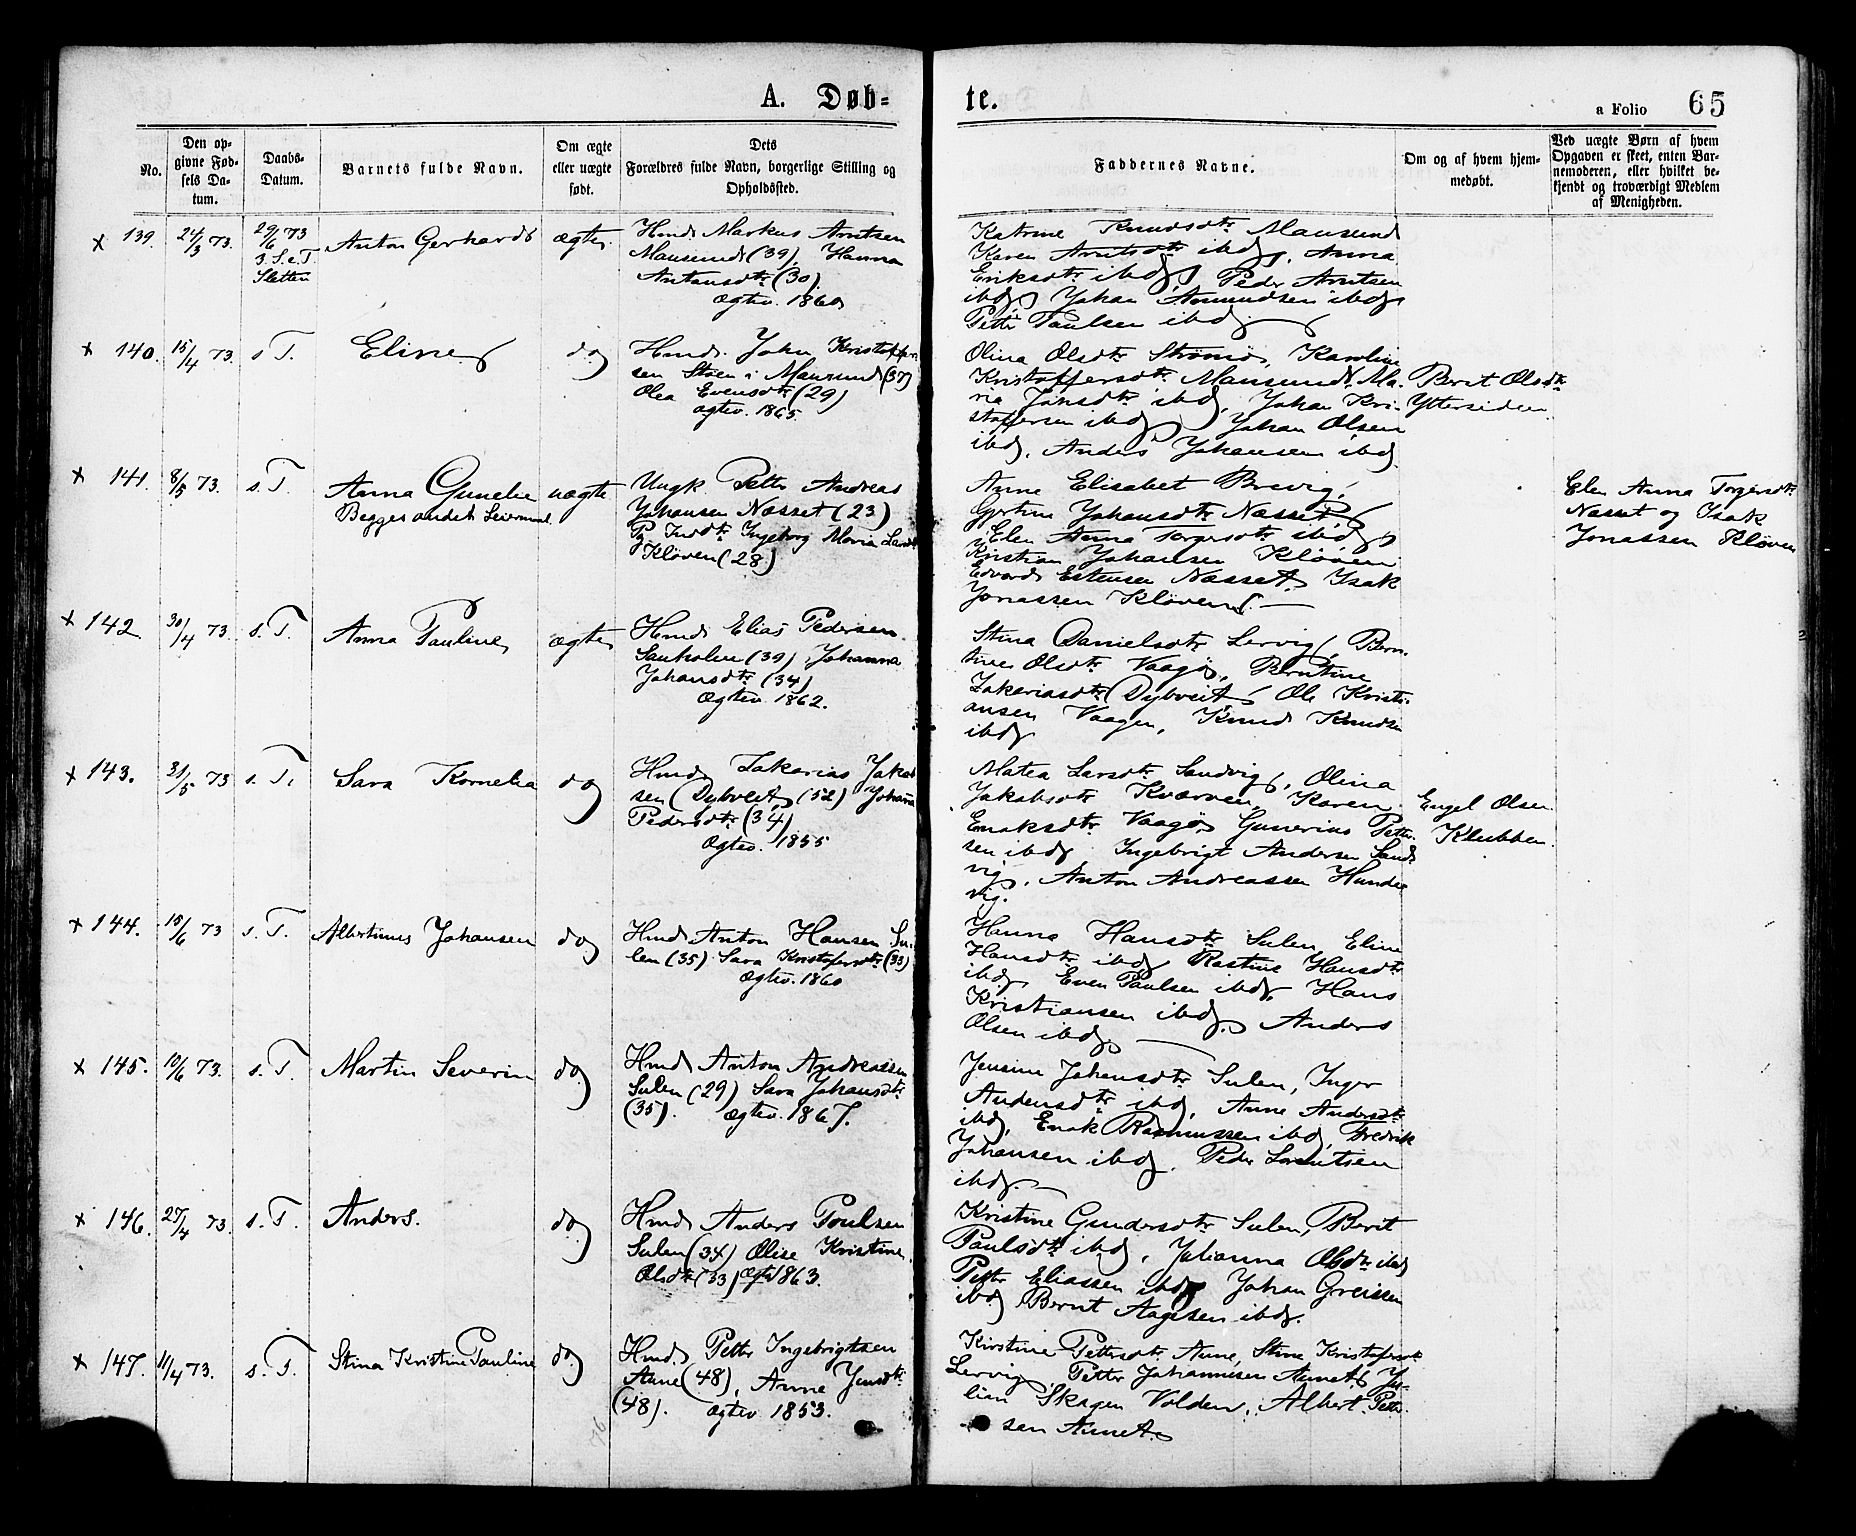 A. Døb=
te.
a Folio 65
No.
Den op-
givne Fød-
sels Da-
tum.
Daabs-
Datum.
Barnets fulde Navn.
Om ægte
eller uægte
født.
Dets
Forældres fulde Navn, borgerlige Stilling og
Opholdssted.
Faddernes Navne.
Om og af hvem hjem-
medøbt.
Ved uægte Børn af hvem
Opgaven er skeet, enten Bar-
nemoderen, eller hvilket be-
kjendt og troværdigt Medlem
af Menigheden.
x 139. 24/3 73.
29/6 73
3. S. e. T.
Sletten
Anton Gerhard
ægte
Hmd. Markus Arntsen
Mausund (39), Hanna
Antonsdtr. (30).
Ægtev. 1860
Katrine Knudsdtr. Mausund
Karen Arntsdtr. ibd, Anna
Eriksdtr. ibd, Peder Arntsen
ibd, Johan Amundsen ibd
Petter Paulsen ibd.
x 140. 15/4 73. s. T. Eline do
Hmd. John Kristoffer-
sen Støen i Mausund (37)
Olea Evensdtr. (29)
ægtev. 1865.
Olina Olsdtr. Strømø, Karoline
Kristoffersdtr. Mausund, Ma-
ria Jonsdtr. ibd, Johan Kri-
stoffersen ibd, Johan Olsen
ibd, Anders Johansen ibd.
Berit Olsdtr.
Yttersiden.
x 141. 8/5 73. s. T. Anna Gunelie uægte
Begges andet Leiermaal.
Ungk. Petter Andreas
Johansen Næsset (23)
Pg. Indtr. Ingeborg Maria
Kløven (28)
Anne Elisabet Brevig,
Gjertine Johansdtr. Næsset,
Elen Anna Torgersdtr. ibd,
Kristian Johansen Kløven
Edvard Estensen Næsset, Isak
Jonassen Kløven.
Elen Anna Torgersdtr.
Næsset og Isak
Jonassen Kløven
x 142. 30/4 73. s. T. Anna Pauline ægte
Hmd. Elias Pedersen
Sauholm (39), Johanna
Johansdtr. (34)
Ægtev. 1862.
Stina Danielsdtr. Lervig, Bern-
tine Olsdtr. Vaagø, Berntine
Zakariasdtr. Dybveit, Ole Kristi-
ansen Vaagen, Knud Knudsen
ibd
x 143. 31/5 73 s. T. Sara Kornelia do
Hmd. Zakarias Jakob
sen Dybveit, (52) Johanna
Pedersdtr. (34)
Ægtev. 1855
Matea Larsdtr. Sandvig, Olina
Jakobsdtr. Kværven, Karen
Enoksdtr. Vaagø, Gunerius Petter-
sen ibd, Ingebrigt Andersen Sand-
vig, Anton Andreassen Hunde-
vig.
Engel Olsen
Klubben.
x 144. 15/6 73 s. T. Albertinus Johansen do
Hmd. Anton Hansen Su-
len (35). Sara Kristofersdtr. (33)
Ægtev. 1860
Hanna Hansdtr. Sulen, Eline
Hansdtr. ibd, Kastine Hansdtr.
ibd, Even Paulsen ibd, Hans
Kristiansen ibd, Anders
Olsen ibd
x 145. 10/6 73. s. T. Martin Severin do
Hmd. Anton Andreassen
Sulen (29) Sara Johansdtr.
(35). ægtev. 1867.
Jensine Johansdtr. Sulen, Inger
Andersdtr. ibd, Anne Andersdtr.
ibd, Enok Rasmussen ibd, Fredrik
Johansen ibd, Peder Lorentsen
ibd.
x 146. 27/4 73. s. T. Anders. do
Hmd. Anders Poulsen
Sulen (34) Olise Kristine
Olsdtr. (33) ægtv 1863.
Kristine Gundersdtr. Sulen, Berit
Paulsdtr. ibd, Julianna Olsdtr. ibd
Petter Eliassen ibd, Johan Greissen
ibd, Bernt Aagesen ibd.
x 147. 11/4 73. s. T. Stina Kristine Pauline do
Hmd. Petter Ingebrigtsen
Aune (48), Anne Jensdtr.
(48). ægtev. 1853.
Kirstine Pettersdtr. Aune, Stine Kristofersdtr.
Lervig, Petter Johannesen Aunet, Ju-
lian Skagen Volden, Albert Petter-
sen Aunet.
76